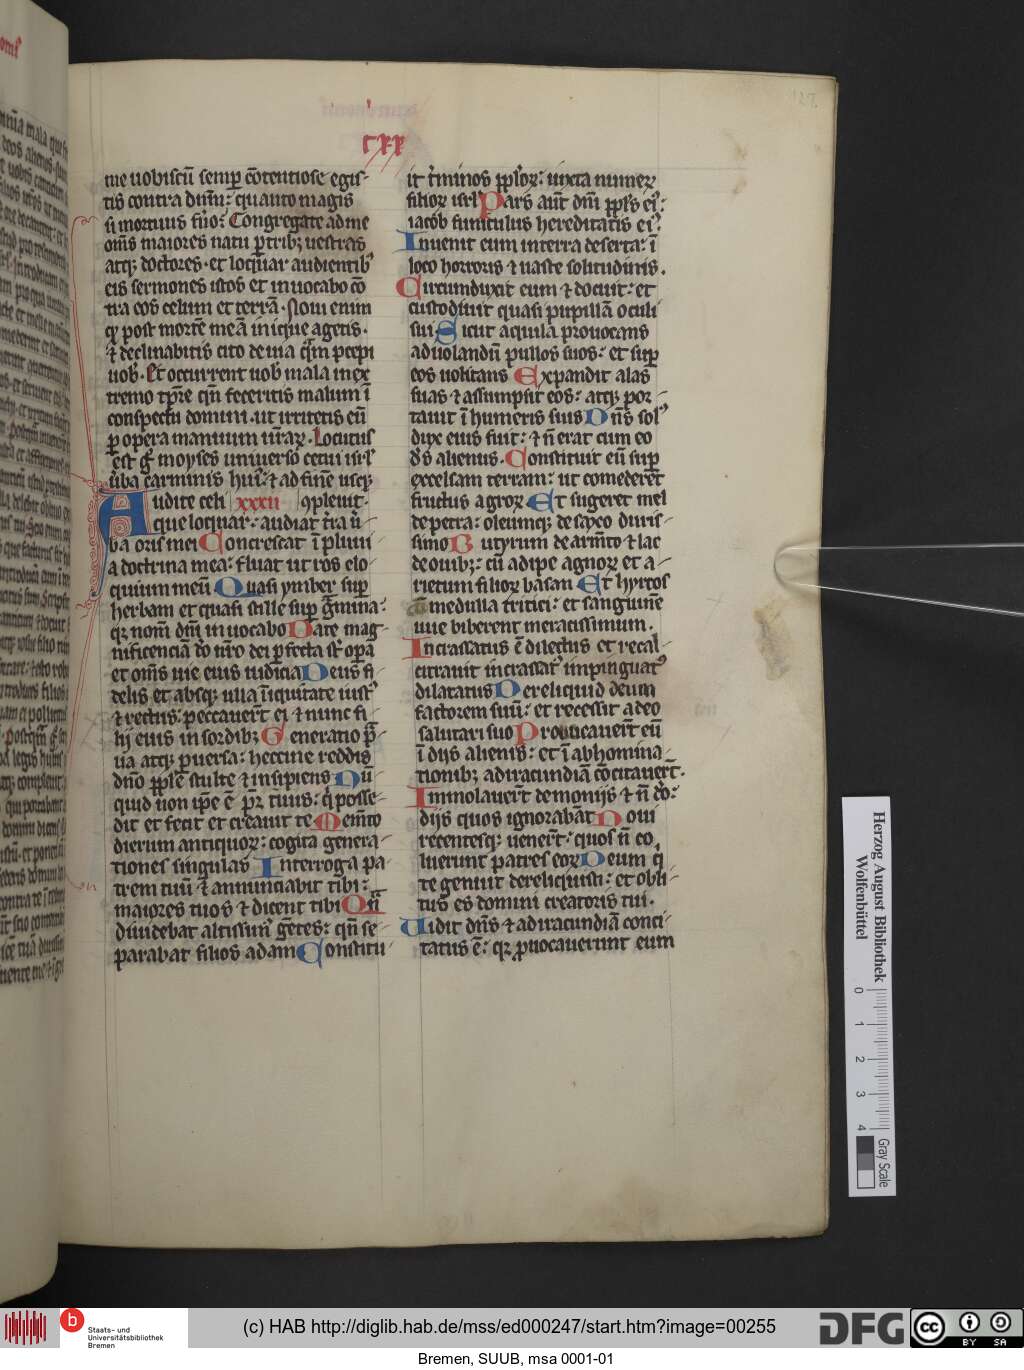 cxx
me uobiscū semp ꝯtentiose egis-
tis contra dñm: quanto magis
si mortuus fuo: Congregate ad me
om̄s maiores natu p tribꝫ uestras
atqꝫ doctores · et loquar audientibꝰ
eis sermones istos et inuocabo cō
tra eos celum et terrā · Noui enim
qꝫ post mortē meā inique agetis ·
⁊ declinabitis cito de uia quā p̄cepi
uob · Et occurrent uob mala in ex
tremo tp̄re qn̄ feceritis malum ī
conspectu domini · ut irritetis eū
ꝑ opera manuum ur̄aꝝ · Locutus
est g̊ moyses uniuerso cetui isrl
ūba carminis huiꝰ · ⁊ ad finē usqꝫ
Audite celi xxxii ꝯpleuit ·
que loquar: audiat t̄ra ū
ba oris mei Concrescat ī pluui
a doctrina mea: fluat ut ros elo
quium meū Quasi ymber suꝑ
herbam et quasi stille suꝑ g̃mina:
qꝛ nom̄ dn̄i inuocabo Date mag
nificenciā do nr̄o dei ꝑfecta sūt oꝑa
et om̄s uie eius iudicia Deus fi
delis et absqꝫ ulla īquitate iustꝰ
⁊ rectus: peccauer̄t ei ⁊ nunc fi
lij eius in sordibꝫ Generatio p̄
ua atqꝫ ꝑuersa: heccine reddis
dn̄o ppl̄e stulte ⁊ insipiens Nū
quid non ip̄e ē pr̄ tuus: q̇ posse
dit et fecit et creauit te Mem̄to
dierum antiquoꝝ: cogita genera
tiones singulas Interroga pa
trem tuū ⁊ annunciabit tibi:
maiores tuos ⁊ dicent tibi Qn̄
diuidebat altissimꝰ gētes: qn̄ se
parabat filios adam Constitu
it t̄minos ppl̄oꝝ: iuxta numeꝝ
filioꝝ isrl Pars aūt dn̄i ppl̄s eiꝰ:
iacob funiculus hereditatis eiꝰ:
Inuenit eum in terra deserta: ī
loco horroris ⁊ uaste solitudinis.
Circumduxit eum ⁊ docuit: et
custodiuit quasi pupillā oculi
sui Sicut aquila prouocans
ad uolandū pullos suos: et suꝑ
eos uolitans Expandit alas
suas · ⁊ assumpsit eos: atqꝫ por
tauit ī humeris suis Dn̄s solꝰ
dux eius fuit: ⁊ n̄ erat cum eo
ds̄ alienus · Constituit eū suꝑ
excelsam terram: ut comederet
fructus agroꝝ Et sugeret mel
de petra: oleumqꝫ de saxo duris-
simo Butyrum de arm̄to ⁊ lac
de ouibꝫ: cū adipe agnoꝝ et a-
rietum filioꝝ basan Et hyrcos
cū medulla tritici: et sanguinē
uue biberent meracissimum.
Incrassatus ē dilectus et recal-
citrauit incrassatꝰ impinguatꝰ
dilatatus Dereliquid deum
factorem suū: et recessit a deo
salutari suo Prouocauer̄t eū
ī dijs alienis: et ī abhomina-
tionibꝫ ad iracundiā cōcitauer̄t ·
Immolauer̄t demonijs ⁊ n̄ do:
dijs quos ignorabāt Noui
recentesqꝫ uener̄t: quos n̄ co
luerunt patres eoꝝ Deum q̇
te genuit dereliquisti: et obli-
tus es domini creatoris tui ·
Uidit dn̄s ⁊ ad iracundiā conci-
tatus ē: qꝛ ꝓuocauerunt eum
Herzog August Bibliothek
Wolfenbüttel
0
1
2
3
4
Gray Scale
b
Staats- und
Universitätsbibliothek
Bremen
(c) HAB http://diglib.hab.de/mss/ed000247/start.htm?image=00255
DFG
cc
BY SA
Bremen, SUUB, msa 0001-01